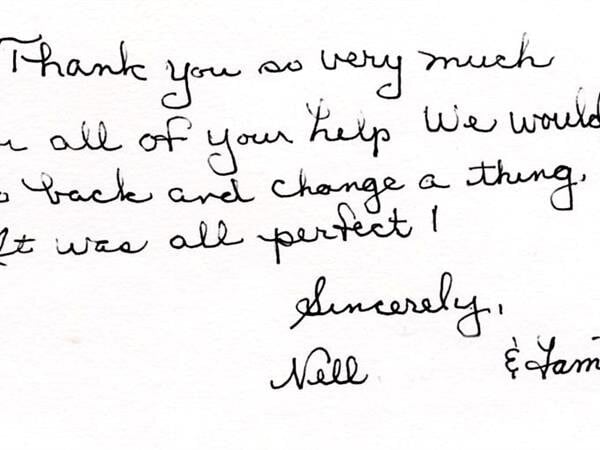 Thank you so very much
all of your help We would
back and change a thing.
It was all perfect!
Sincerely,
Nell & Fam